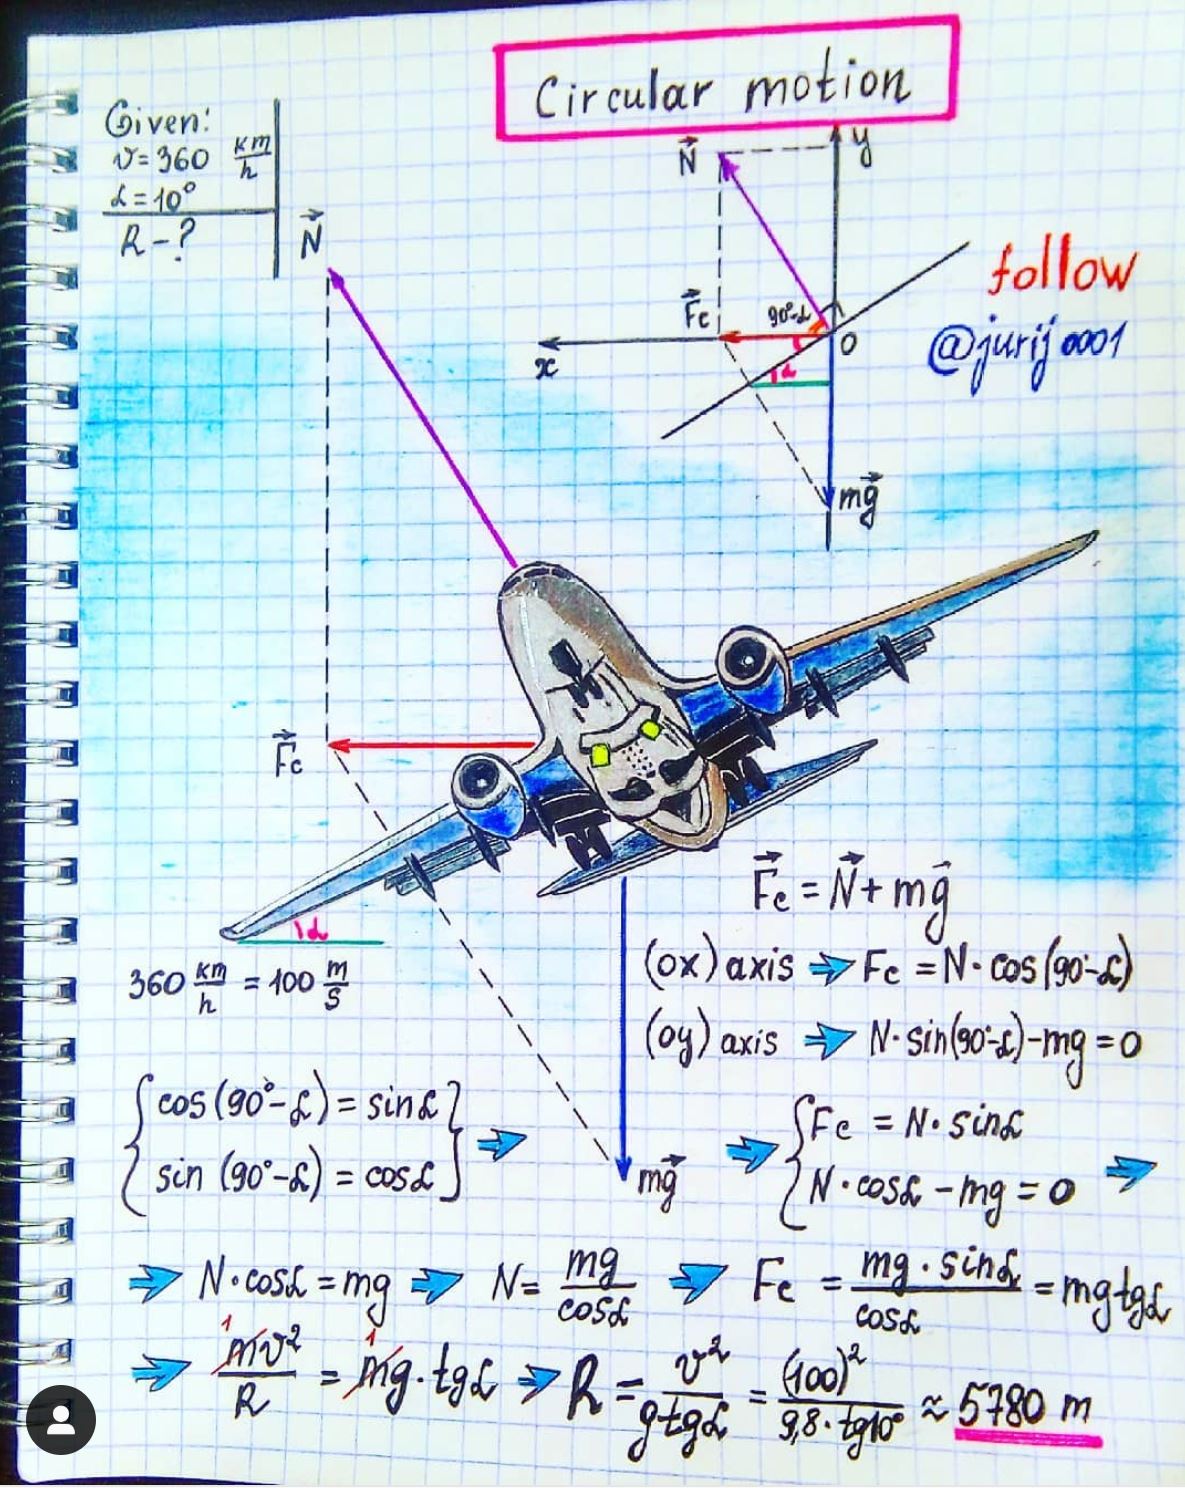 Circular motion
Given:
v=360 км/h
α=10°
R-?
N⃗
N⃗
y
F⃗c
90°-α
O
x
α
mg⃗
follow
@jurij0001
F⃗c
α
360 км/h = 100 m/s
F⃗c = N⃗ + mg⃗
(ox) axis ⇒ Fc = N·cos(90°-α)
(oy) axis ⇒ N·sin(90°-α)-mg=0
mg⃗
{cos(90°-α) = sinα
sin(90°-α) = cosα} ⇒
⇒ {Fc = N·sinα
N·cosα - mg = 0 ⇒
⇒ N·cosα = mg ⇒ N = mg/cosα ⇒ Fc = mg·sinα/cosα = mgtgα
1 1
⇒ mv²/R = mg·tgα ⇒ R = v²/gtgα = (100)²/9,8·tg10° ≈ 5780 m